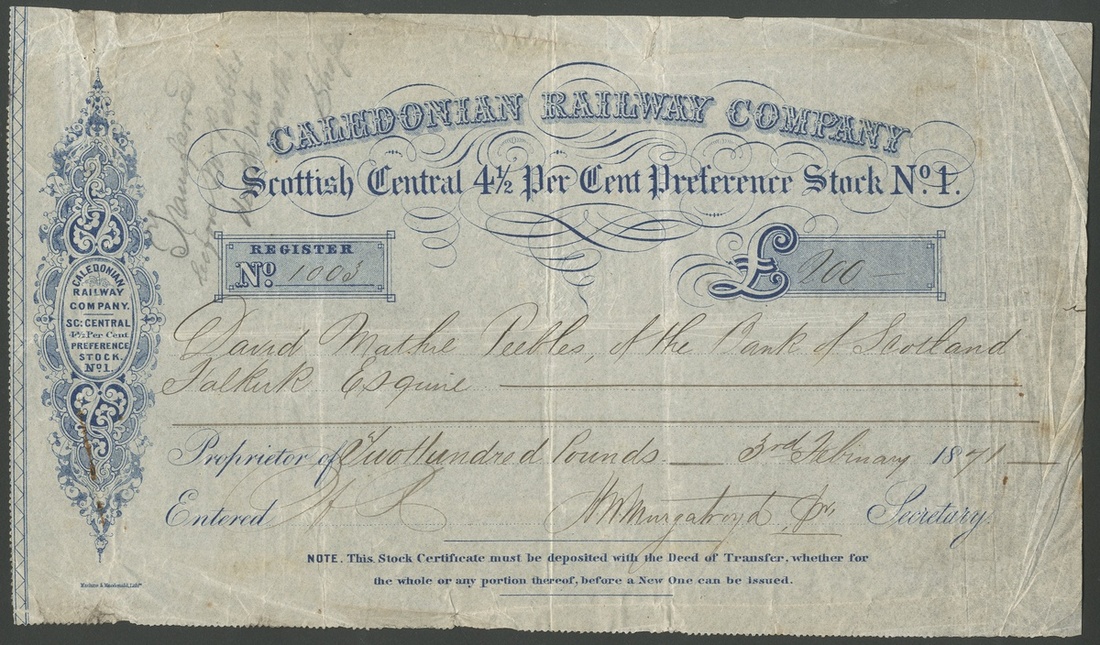 CALEDONIAN RAILWAY COMPANY
Scottish Central 4½ Per Cent Preference Stock No. 1.
REGISTER
No. 1003
£ 200 —
CALEDONIAN
RAILWAY
COMPANY.
SC: CENTRAL
4½ Per Cent
PREFERENCE
STOCK.
No. 1.
David Mathie Peebles, of the Bank of Scotland
Falkirk Esquire
Proprietor of Two Hundred Pounds — 3rd February 1871 —
Entered
H Murgatroyd Secretary.
NOTE. This Stock Certificate must be deposited with the Deed of Transfer, whether for
the whole or any portion thereof, before a New One can be issued.
Maclure & Macdonald, Lith